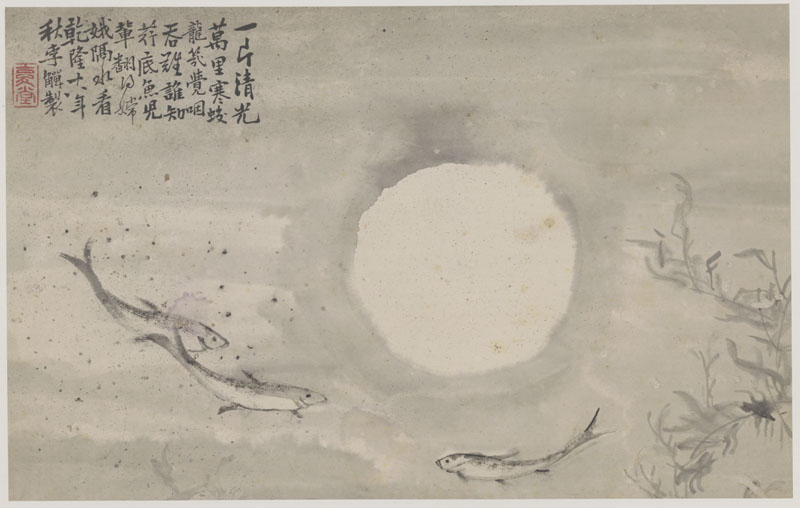 一片清光
萬里寒蛟
龍幾覺咽
吞難誰知
荇底魚兒
輩翻得嫦
娥隔水看
乾隆十年
秋李鱓製